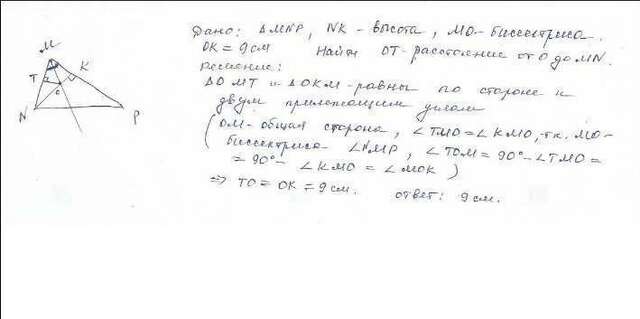 Дано: ΔMNP, NK - высота, MO - биссектриса.
OK = 9 см Найти OT - расстояние от O до MN.
Решение:
ΔOMT и ΔOKM - равны по стороне и
двум прилежащим углам
(OM - общая сторона, ∠TMO = ∠KMO, т.к. MO -
биссектриса ∠NMP, ∠TOM = 90° - ∠TMO =
= 90° - ∠KMO = ∠MOK)
=> TO = OK = 9 см. ответ: 9 см.
M
T
K
O
N
P